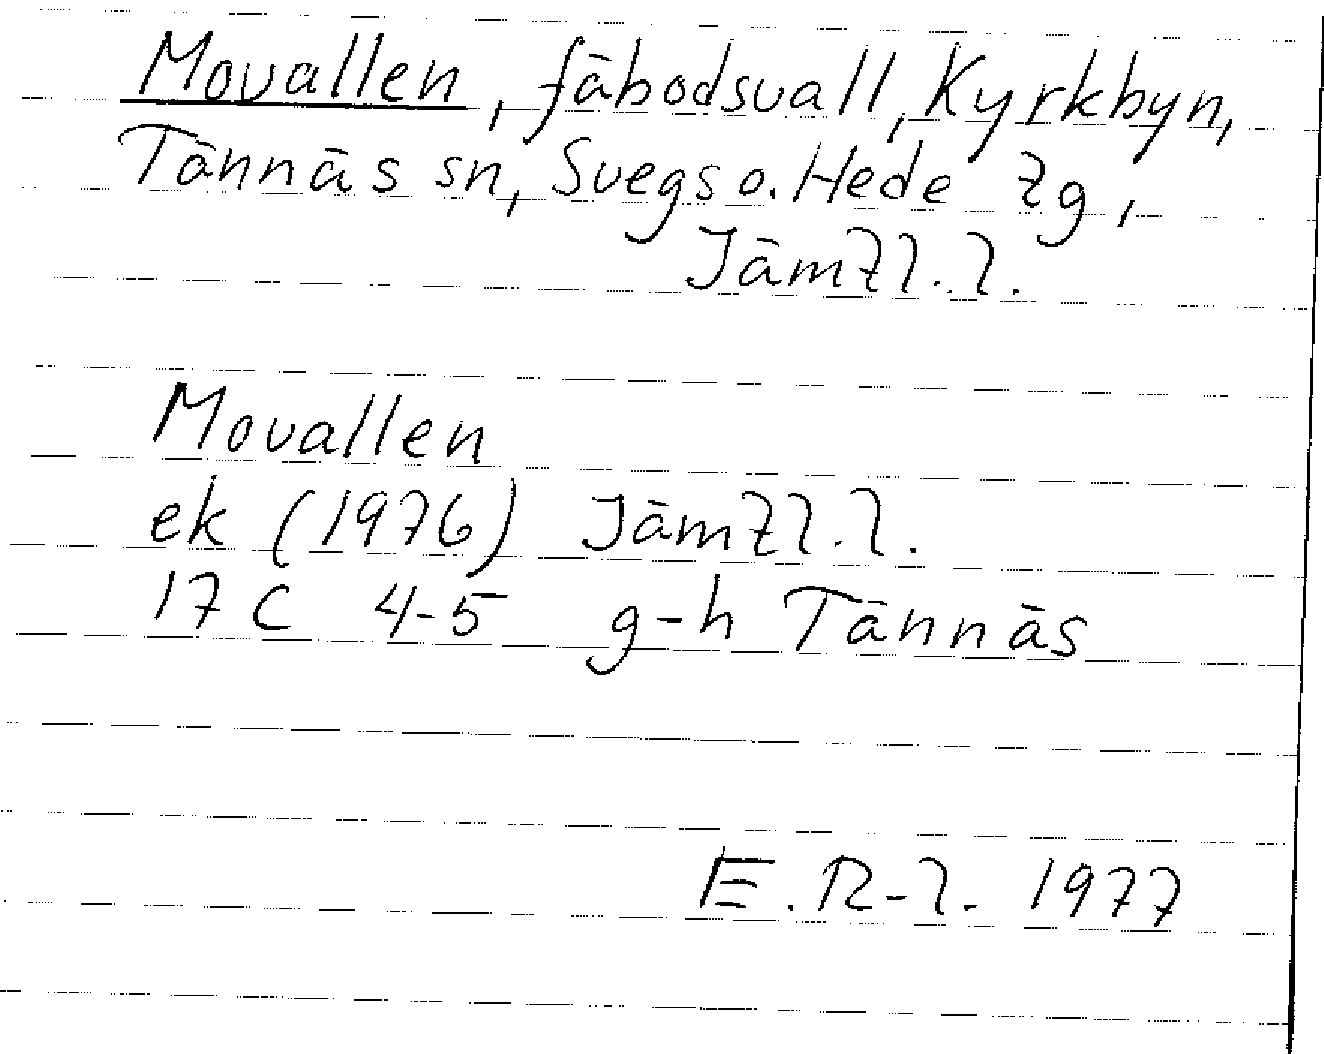 Movallen, fäbodsvall, Kyrkbyn,
Tännäs sn, Svegs o. Hede tg,
Jämtl. l.
Movallen
ek (1976) Jämtl. l.
17 C 4-5 g-h Tännäs
E. R-l. 1977